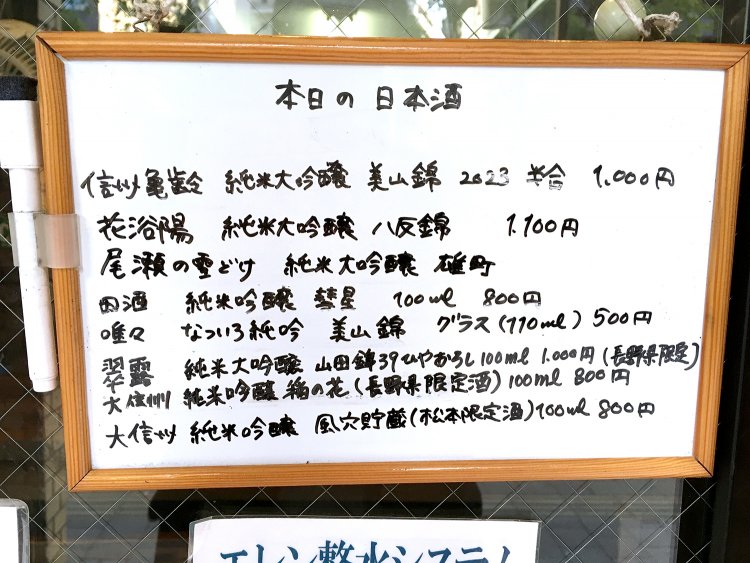 本日の 日本酒
信州亀齢 純米大吟醸 美山錦 2023 半合 1.000円
花浴陽 純米大吟醸 八反錦 1.100円
尾瀬の雪どけ 純米大吟醸 雄町
田酒 純米吟醸 彗星 100ml 800円
唯々 なついろ純吟 美山錦 グラス(110ml) 500円
翠露 純米大吟醸 山田錦39ひやおろし 100ml 1.000円(長野県限定)
大信州 純米吟醸 稲の花(長野県限定酒)100ml 800円
大信州 純米吟醸 風穴貯蔵(松本限定酒)100ml 800円
エレン整水システム